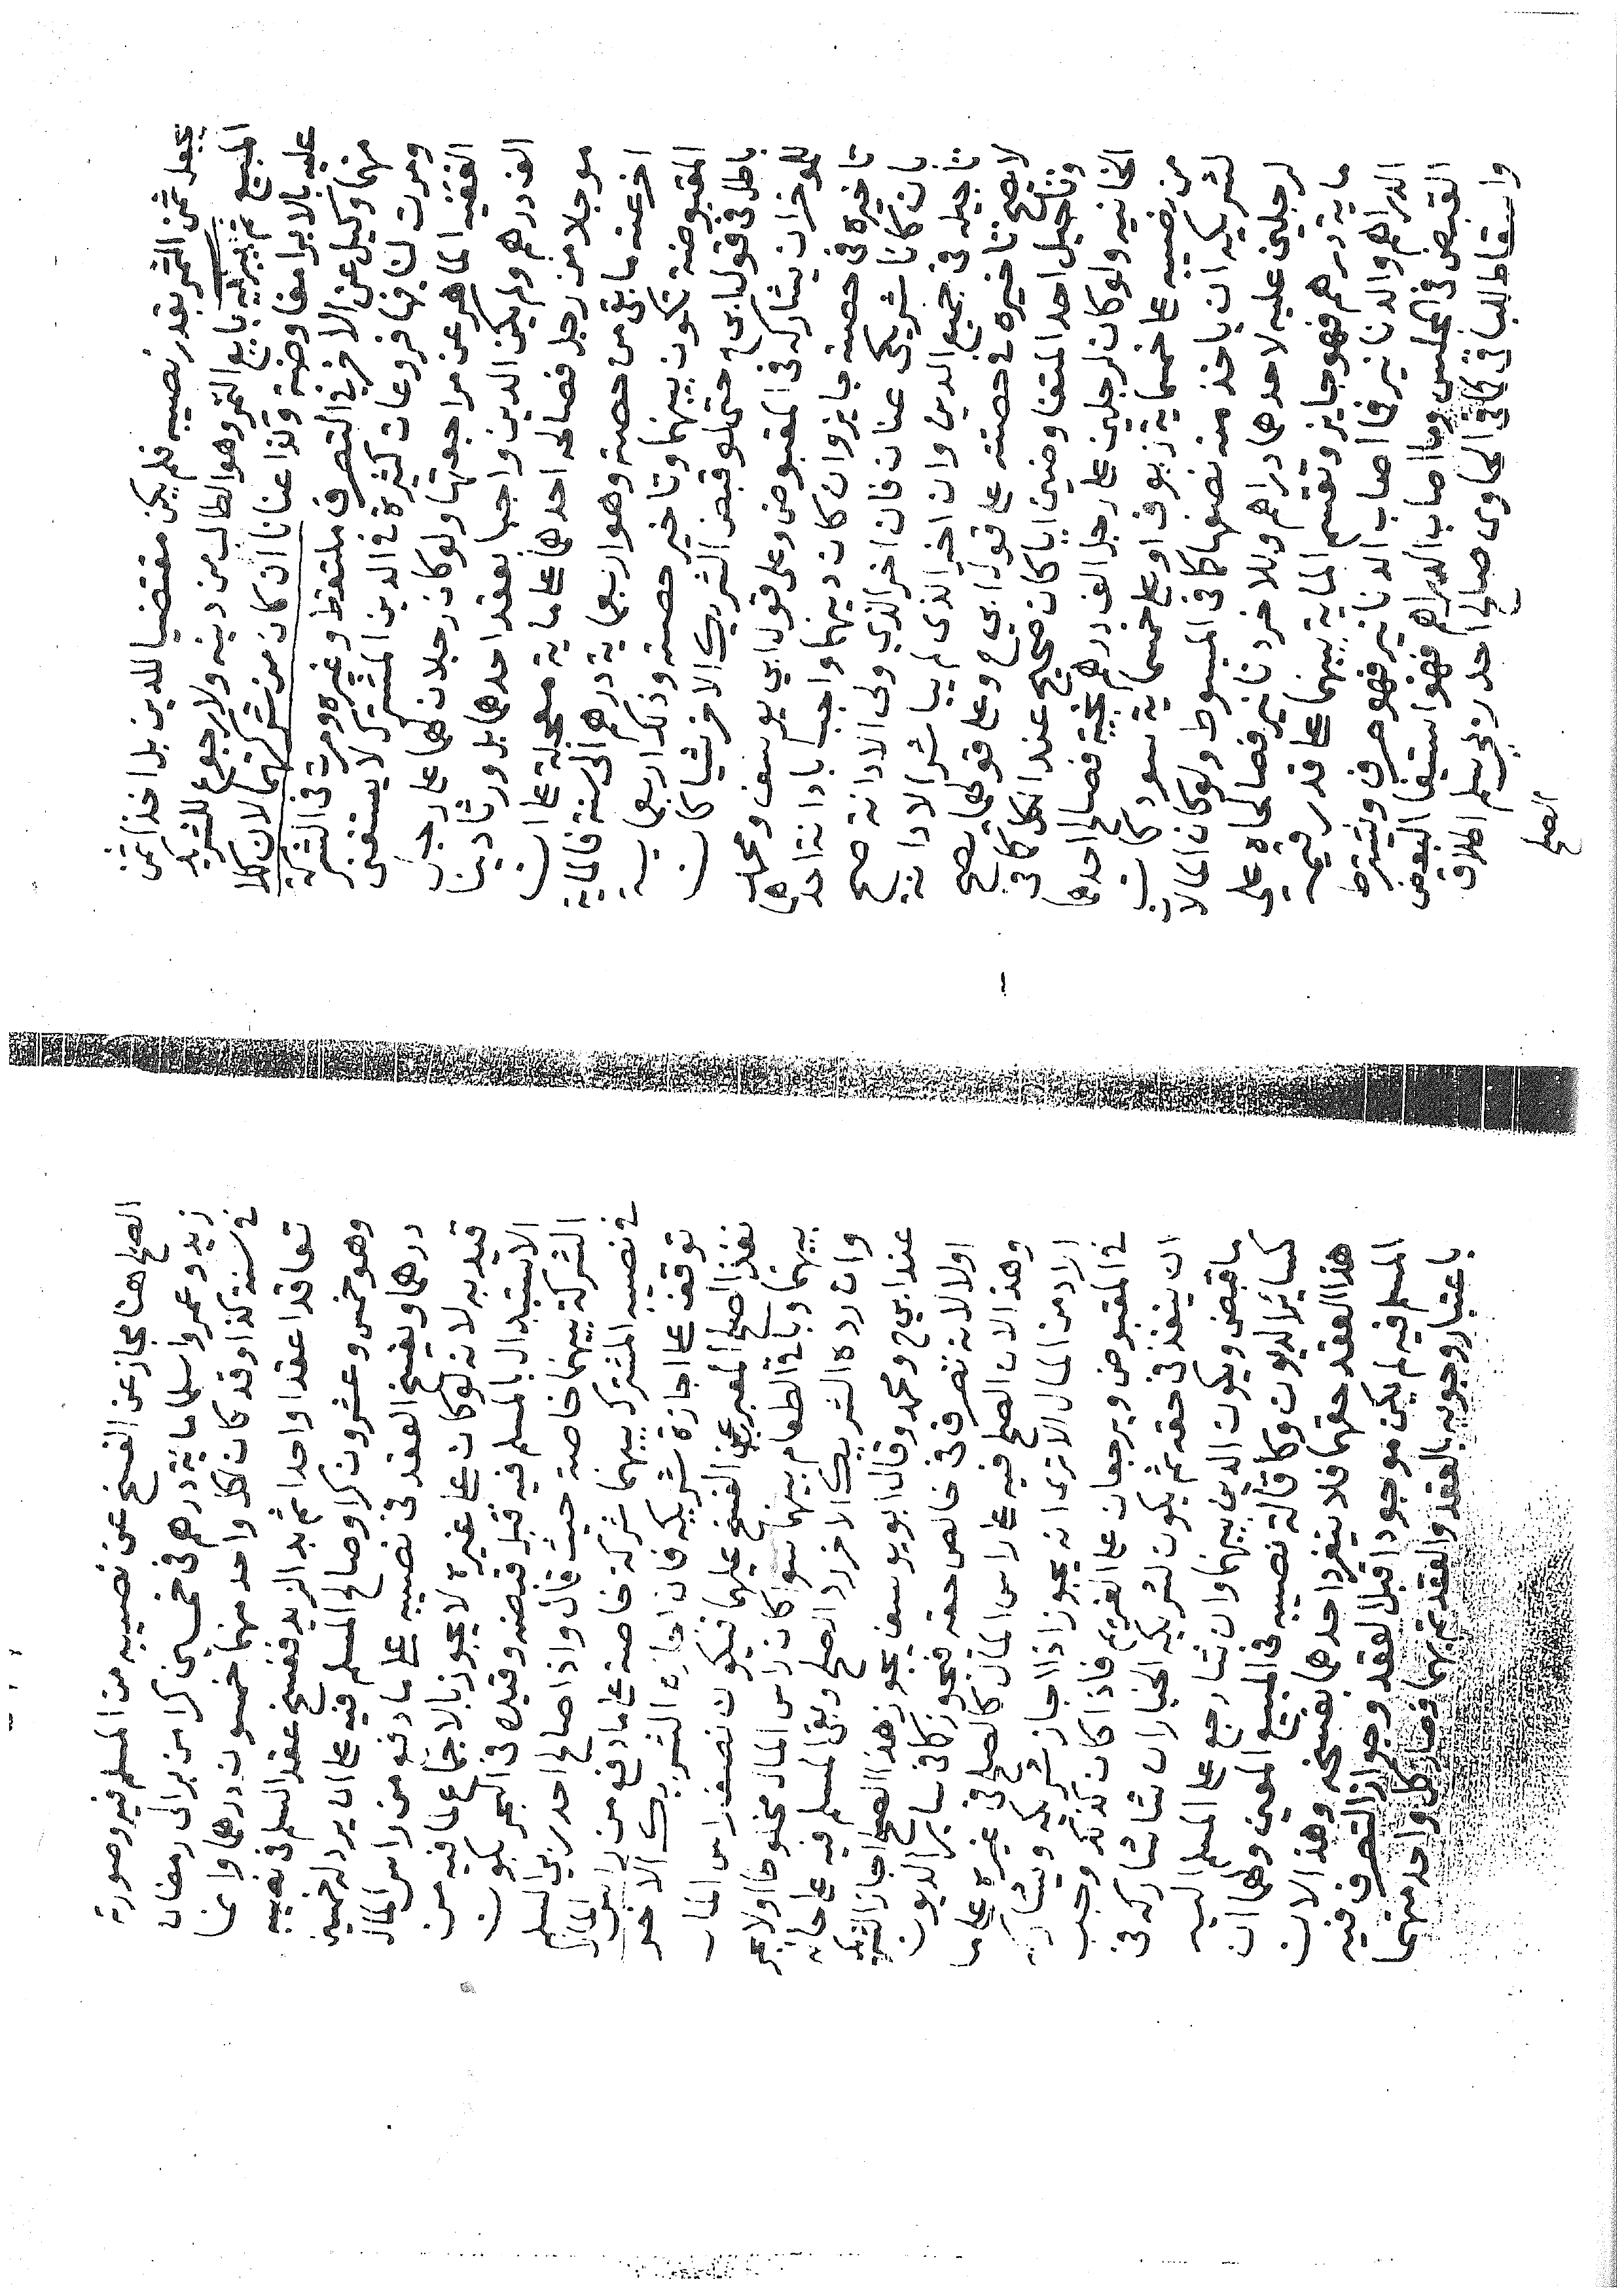 يجعل ثمن الثمر بقدر نصيبه فلم يكن مقتضيا للدين بل اخذ ثمن
المبيع ثم تبريه بايع الثمر وهو الطالب من دينه ولا رجوع للشريك
عليه بالابرا مفاوضة وكذا عنانا ان كان من شركتهما لان كلا
منهما وكيل عن الاخر في التصرف ملتقط وغيره ومرت في الشركة
ومرت لنا فيها فروعات كثيرة في الدين المشترك لا يستغنى
الفقيه الماهر عن مراجعتها ولو كان رجلان لهما على رجل
الف درهم ولم يكن الدين واجبا بعقد احدهما بل ورثا دينا
موجلا من رجل فصالحه احدهما على ماية معجلة على ان
اخر عنه ما بقى من حصته وهو اربعماية درهم الى سنة فالماية
المقبوضة تكون بينهما وتاخير حصته وذكر اربعماية
باطل في قول ابي ح حتى لو قبض الشريك الاخر شيا كان
للموخر ان يشاركه في المقبوض وعلى قول ابي يوسف ومحمد
تاخيره في حصته جايز وان كان دينهما واجبا بادانة احدهما
بان كانا شريكي عنان فان اخر الذي ولى الادانة صح
تاجيله في جميع الدين وان اخر الذي لم يباشر الادانة
لا يصح تاخيره في حصته على قول ابي ح وعلى قولهما يصح
وتاجيل احد المتفاوضين ايا كان صحيح عند الكل كما في
الخانيه ولو كان لرجلين على رجل الف درهم نجية فصالح احدهما
من نصيبه على خمسماية زيوف او على خمسماية سود كان
لشريكه ان ياخذ منه نصفها كما في المبسوط ولو كان المالان
لرجلين عليه لاحدهما دراهم وللاخر دنانير فصالحاه على
ماية درهم فهو جايز وتقتسم الماية بينهما على قدر قيمة
الدراهم والدنانير فما اصاب الدنانير فهو صرف ويشترط
القبض في المجلس وما اصاب الدراهم فهو استيفا البعض
واسقاط للباقي كما في الحاوى صالح احد ربي سلم اطلاق
الصلح
الصلح هنا مجاز عن الفسخ عن نصيبه من المسلم فيه وصورة
زيد وعمرو اسلما ماية درهم في خمسين كرا من بر الى رمضان
في سنة كذا وقد كان لكل واحد منهما خمسون درهما وانما
تعاقدا عقدا واحدا ثم بدا لزيد ففسخ عقد السلم في نصيبه
وهو خمس وعشرون كرا وصالح المسلم فيه على ان يرد له خمسين
درهما ويفسخ العقد في نصيبه على ما دفع من راس المال
قيد به لانه لو كان على غيره لا يجوز بالاجماع لما فيه من
الاستبدال بالمسلم فيه قبل قبضه وقيده في البحر بكون
الشركة بينهما خاصة حيث قال واذا صالح احد ربي السلم
في نصيبه المشترك بينهما شركة خاصة على ما دفع من راس المال
توقف على اجازة شريكه فان اجازه الشريك الاخر
نفذ الصلح المعبر عن الفسخ عليهما فيكون نصف راس المال
بينهما وباقي الطعام بينهما سوا كان راس المال مخلوطا اولا
وان رده الشريك الاخر رد الصلح وبقى المسلم فيه على حاله
عند ابي ح ومحمد وقال ابو يوسف يجوز هذا الصلح اجاز الشريك
اولا لانه تصرف في خالص حقه فيجوز كما في ساير الديون
وهذا لان الصلح فيه على راس المال كالصلح في غيره على ما
اراد من المال الا ترى انه يجوز اذا اجاز شريكه ويشاركه
في المقبوض ويرجعان على الغريم فاذا كان كذلك وجب
ان ينفذ في حقه ثم يكون لشريكه الخيار ان شا شاركه في
ما قبض ويكون الدين بينهما وان شا رجع على المسلم اليه
كساير الديون وكاقالة نصيبه في المبيع المعين ولهما ان
هذا العقد حقهما فلا ينفرد احدهما بفسخه وهذا لان
المسلم فيه لم يكن موجودا قبل العقد وجواز التصرف فيه
باعتبار وجوبه بالعقد والعقد تم بهما فصار كل واحد منهما